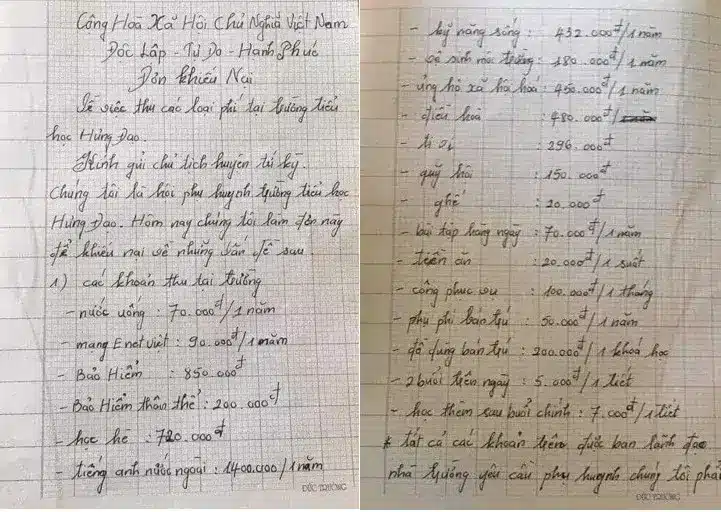 Cộng Hoà Xã Hội Chủ Nghĩa Việt Nam
Độc Lập - Tự Do - Hạnh Phúc
Đơn khiếu Nại
Về việc thu các loại phí tại trường tiểu
học Hưng Đạo.
Kính gửi chủ tịch huyện tứ kỳ.
Chúng tôi là hội phụ huynh trường tiểu học
Hưng Đạo. Hôm nay chúng tôi làm đơn này
để khiếu nại về những vấn đề sau.
1) các khoản thu tại trường
- nước uống : 70.000đ/1 năm
- mạng Enetviet : 90.000đ/1 năm
- Bảo Hiểm : 850.000đ
- Bảo Hiểm thân thể : 200.000đ
- học hè : 720.000đ
- tiếng anh nước ngoài : 1400.000/1 năm
ĐỨC TRƯỜNG
- kỹ năng sống : 432.000đ/1 năm
- vệ sinh môi trường : 180.000đ/1 năm
- ủng hộ xã hội hoá : 450.000đ/1 năm
- điều hoà : 480.000đ/
- ti vi : 296.000đ
- quỹ hội : 150.000đ
- ghế : 20.000đ
- bài tập hàng ngày : 70.000đ/1 năm
- tiền ăn : 20.000đ/1 suất
- công phục vụ : 100.000đ/1 tháng
- phụ phí bán trú : 50.000đ/1 năm
- đồ dùng bán trú : 200.000đ/1 khoá học
- 2 buổi trên ngày : 5.000đ/1 tiết
- học thêm sau buổi chính : 7.000đ/1 tiết
* tất cả các khoản trên được ban lãnh đạo
nhà trường yêu cầu phụ huynh chúng tôi phải
ĐỨC TRƯỜNG